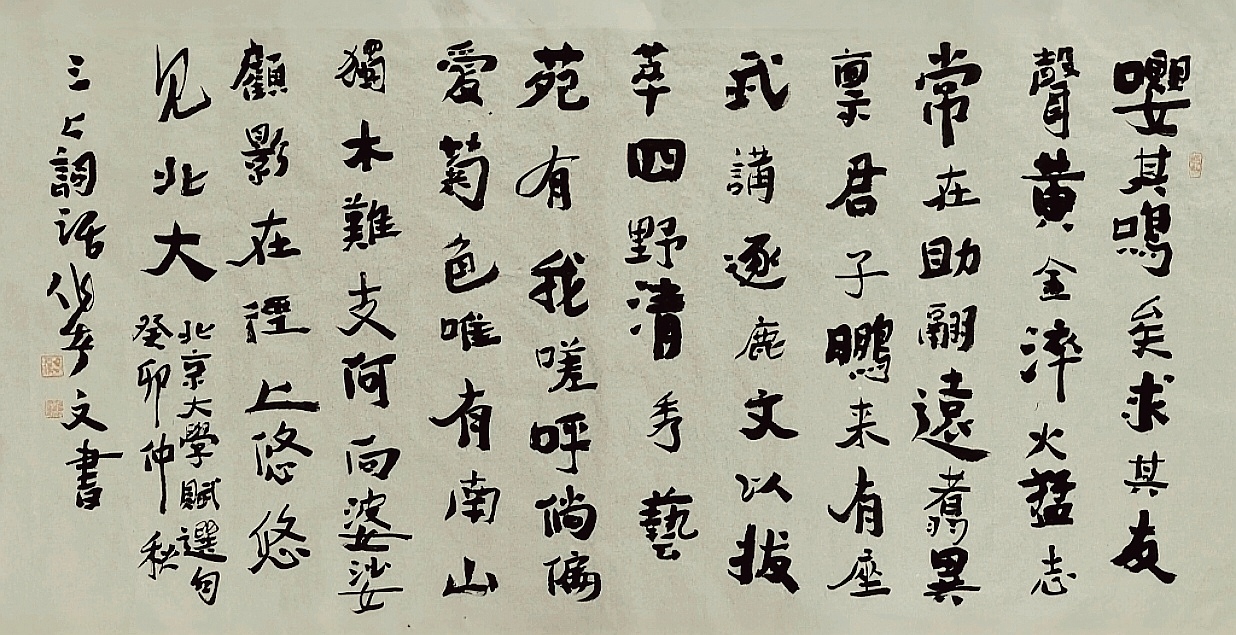 嚶其鳴矣求其友
聲黄金淬火猛志
常在助翮遠翥異
禀君子鵬来有座
武講逐鹿文以拔
萃四野清秀藝
苑有我嗟呼倘偏
愛菊色唯有南山
獨木難支何向婆娑
顧影在徑上悠悠
见北大
北京大學賦選句
癸卯仲秋
三上詞話文書